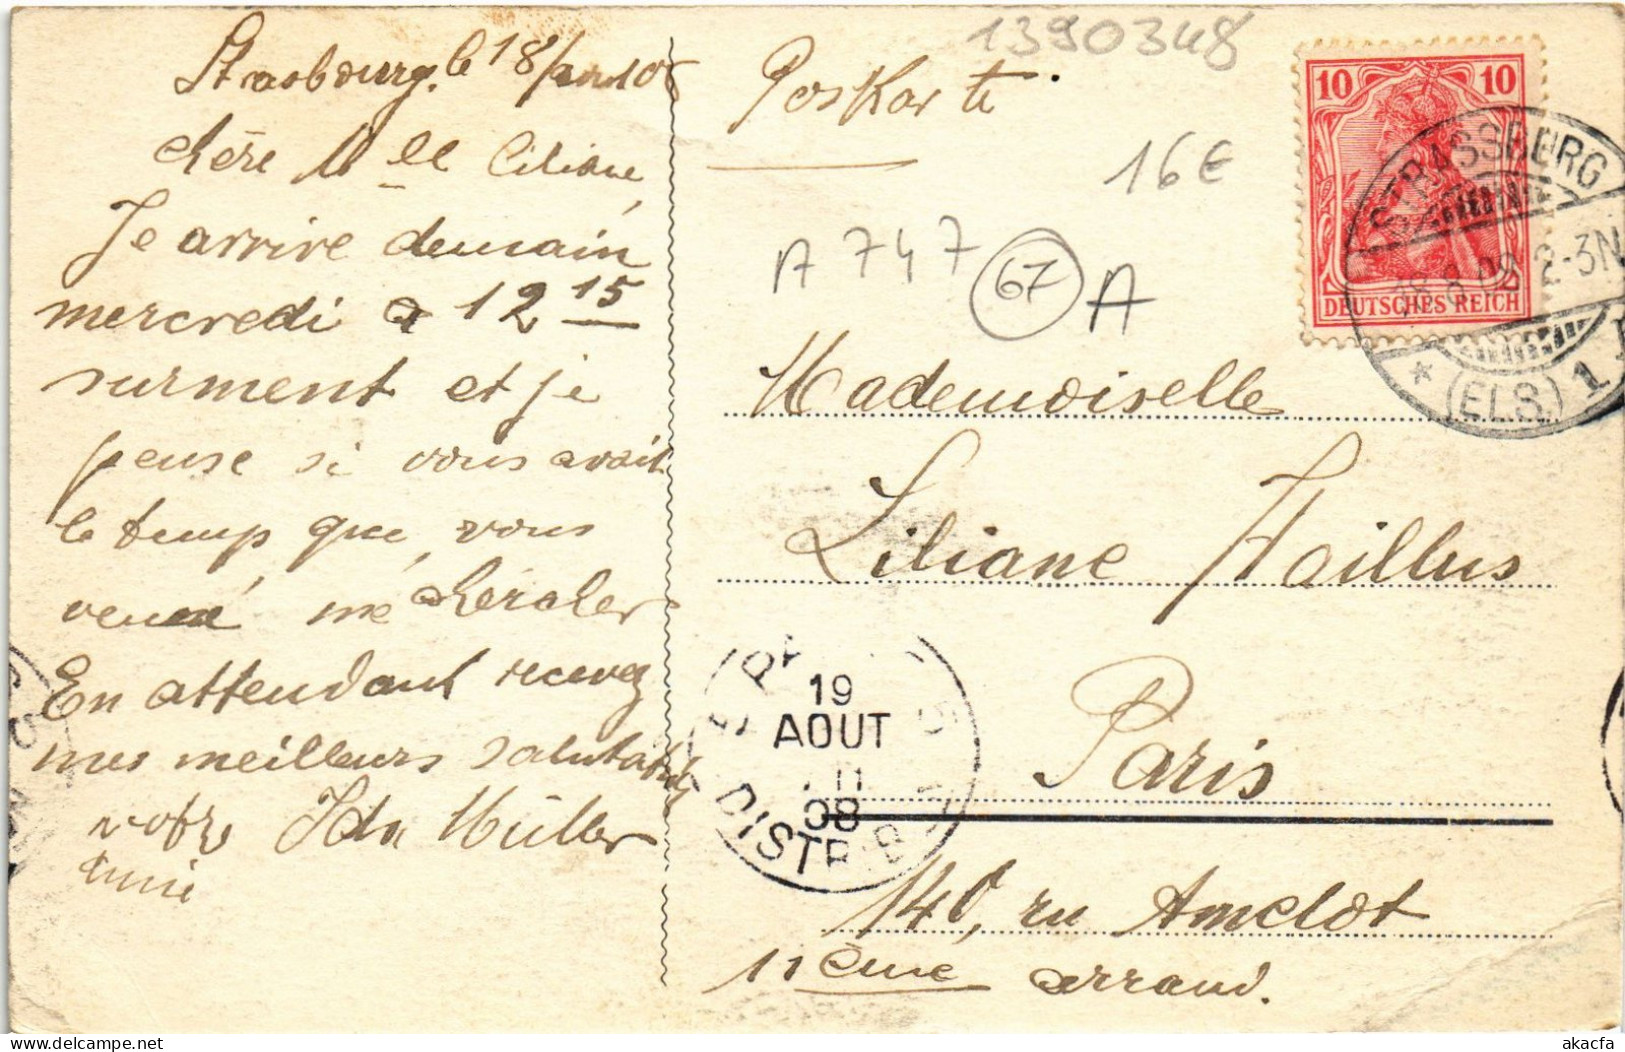 Strasbourg. le 18/
chère Mlle Liliane,
Je arrive demain
mercredi a 12 15
surment et je
pense si vous avait
le temp que, vous
me chercher
En attendant recevez
mes meilleurs salutations
votre Ida Müller
amie
1390348
Poskarte
16€
A 747 67 A
10 10
DEUTSCHES REICH
STRASSBURG
18.8.08 2-3N
* (ELS.) 1
Mademoiselle
Liliane Haillus
Paris
140, ru Amelot
11 ème arrand.
19
AOUT
08
DISTRIB
akacfa